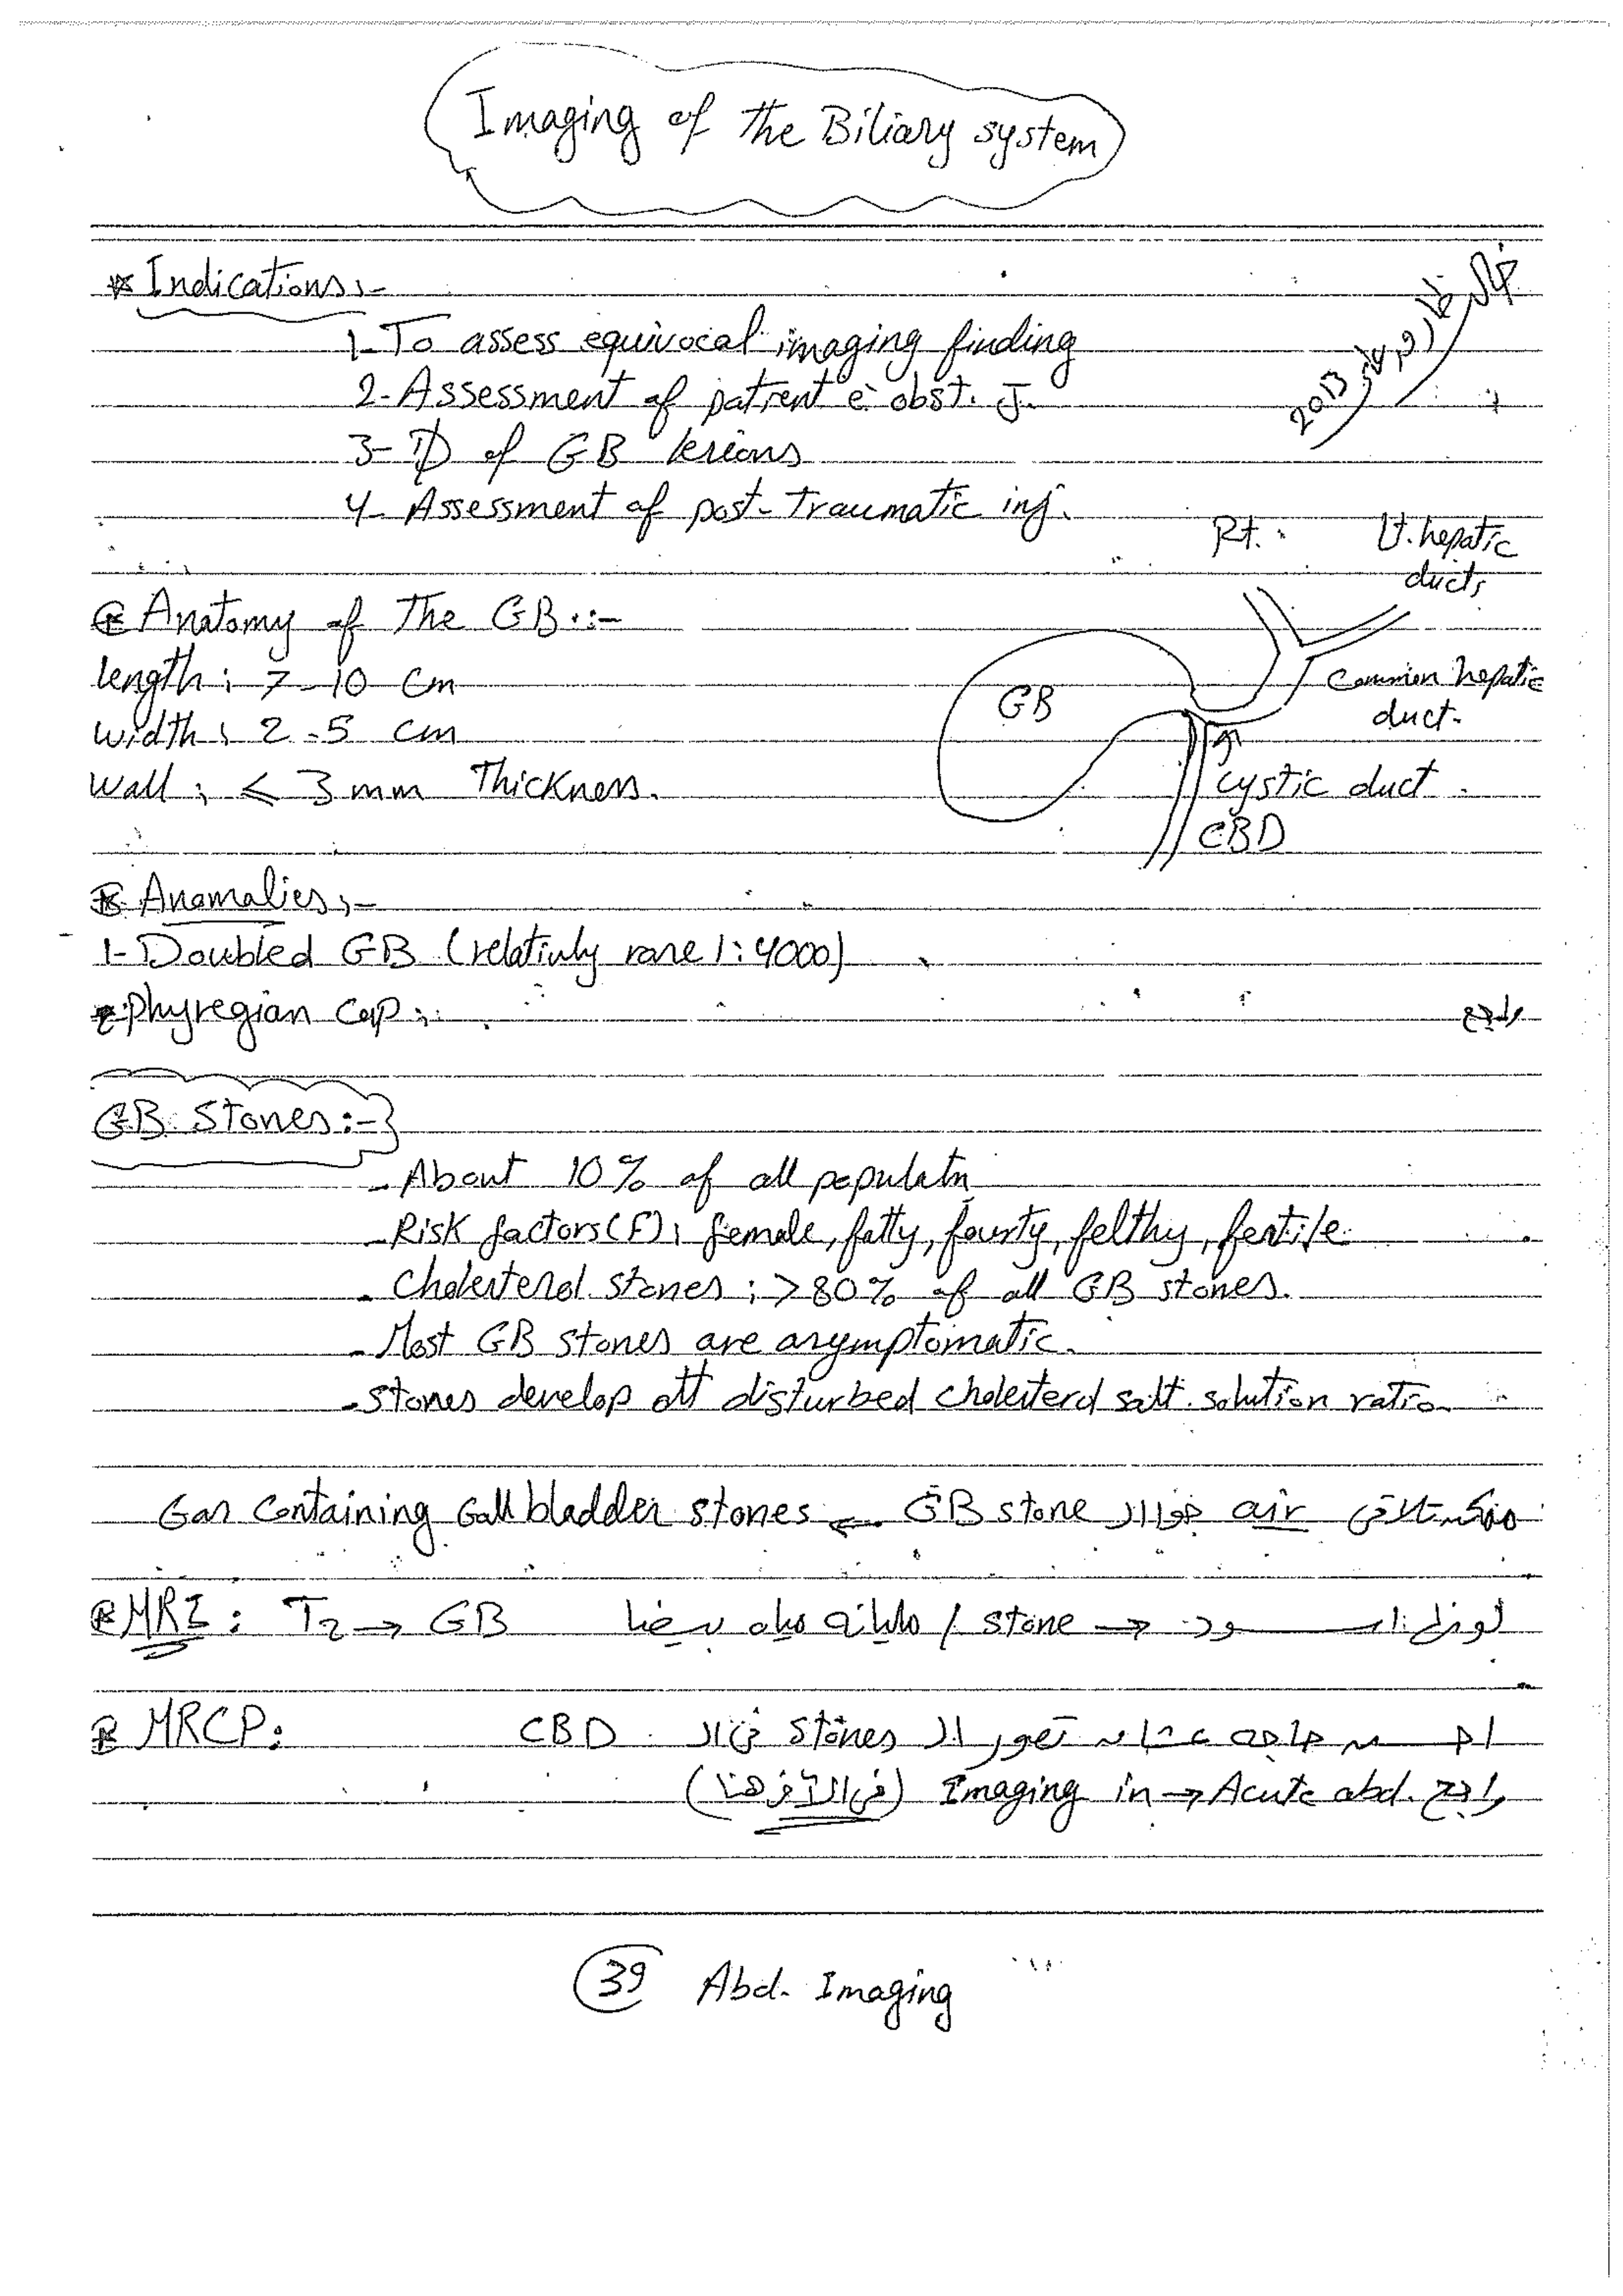 Imaging of the Biliary system
* Indications:-
1- To assess equivocal imaging finding
2- Assessment of patient c̄ obst. J.
3- D of GB lesions
4- Assessment of post-traumatic inj.
2013
Rt. Lt. hepatic
ducts
* Anatomy of The GB:-
length: 7-10 cm
width: 2-5 cm
wall: ≤ 3 mm Thickness.
GB
Common hepatic
duct.
cystic duct
CBD
* Anomalies:-
1- Doubled GB (relativly rare 1:4000)
2- Phyregian Cap: راجع
GB Stones:-
- About 10% of all populatn
- Risk factors (F): female, fatty, fourty, felthy, fertile
- Cholesterol stones: >80% of all GB stones.
- Most GB stones are asymptomatic.
- stones develop dtt disturbed cholesterol salt solution ratio
ممكن تلاقي air جوا الـ GB stone ← Gas Containing Gallbladder stones
* MRI: T2 → GB مليانه مياه بيضا / stone → لونها اسود
* MRCP: اهم حاجة عشان تصور الـ stones في الـ CBD
راجع Imaging in → Acute abd. (في الآخر هنا)
39 Abd. Imaging